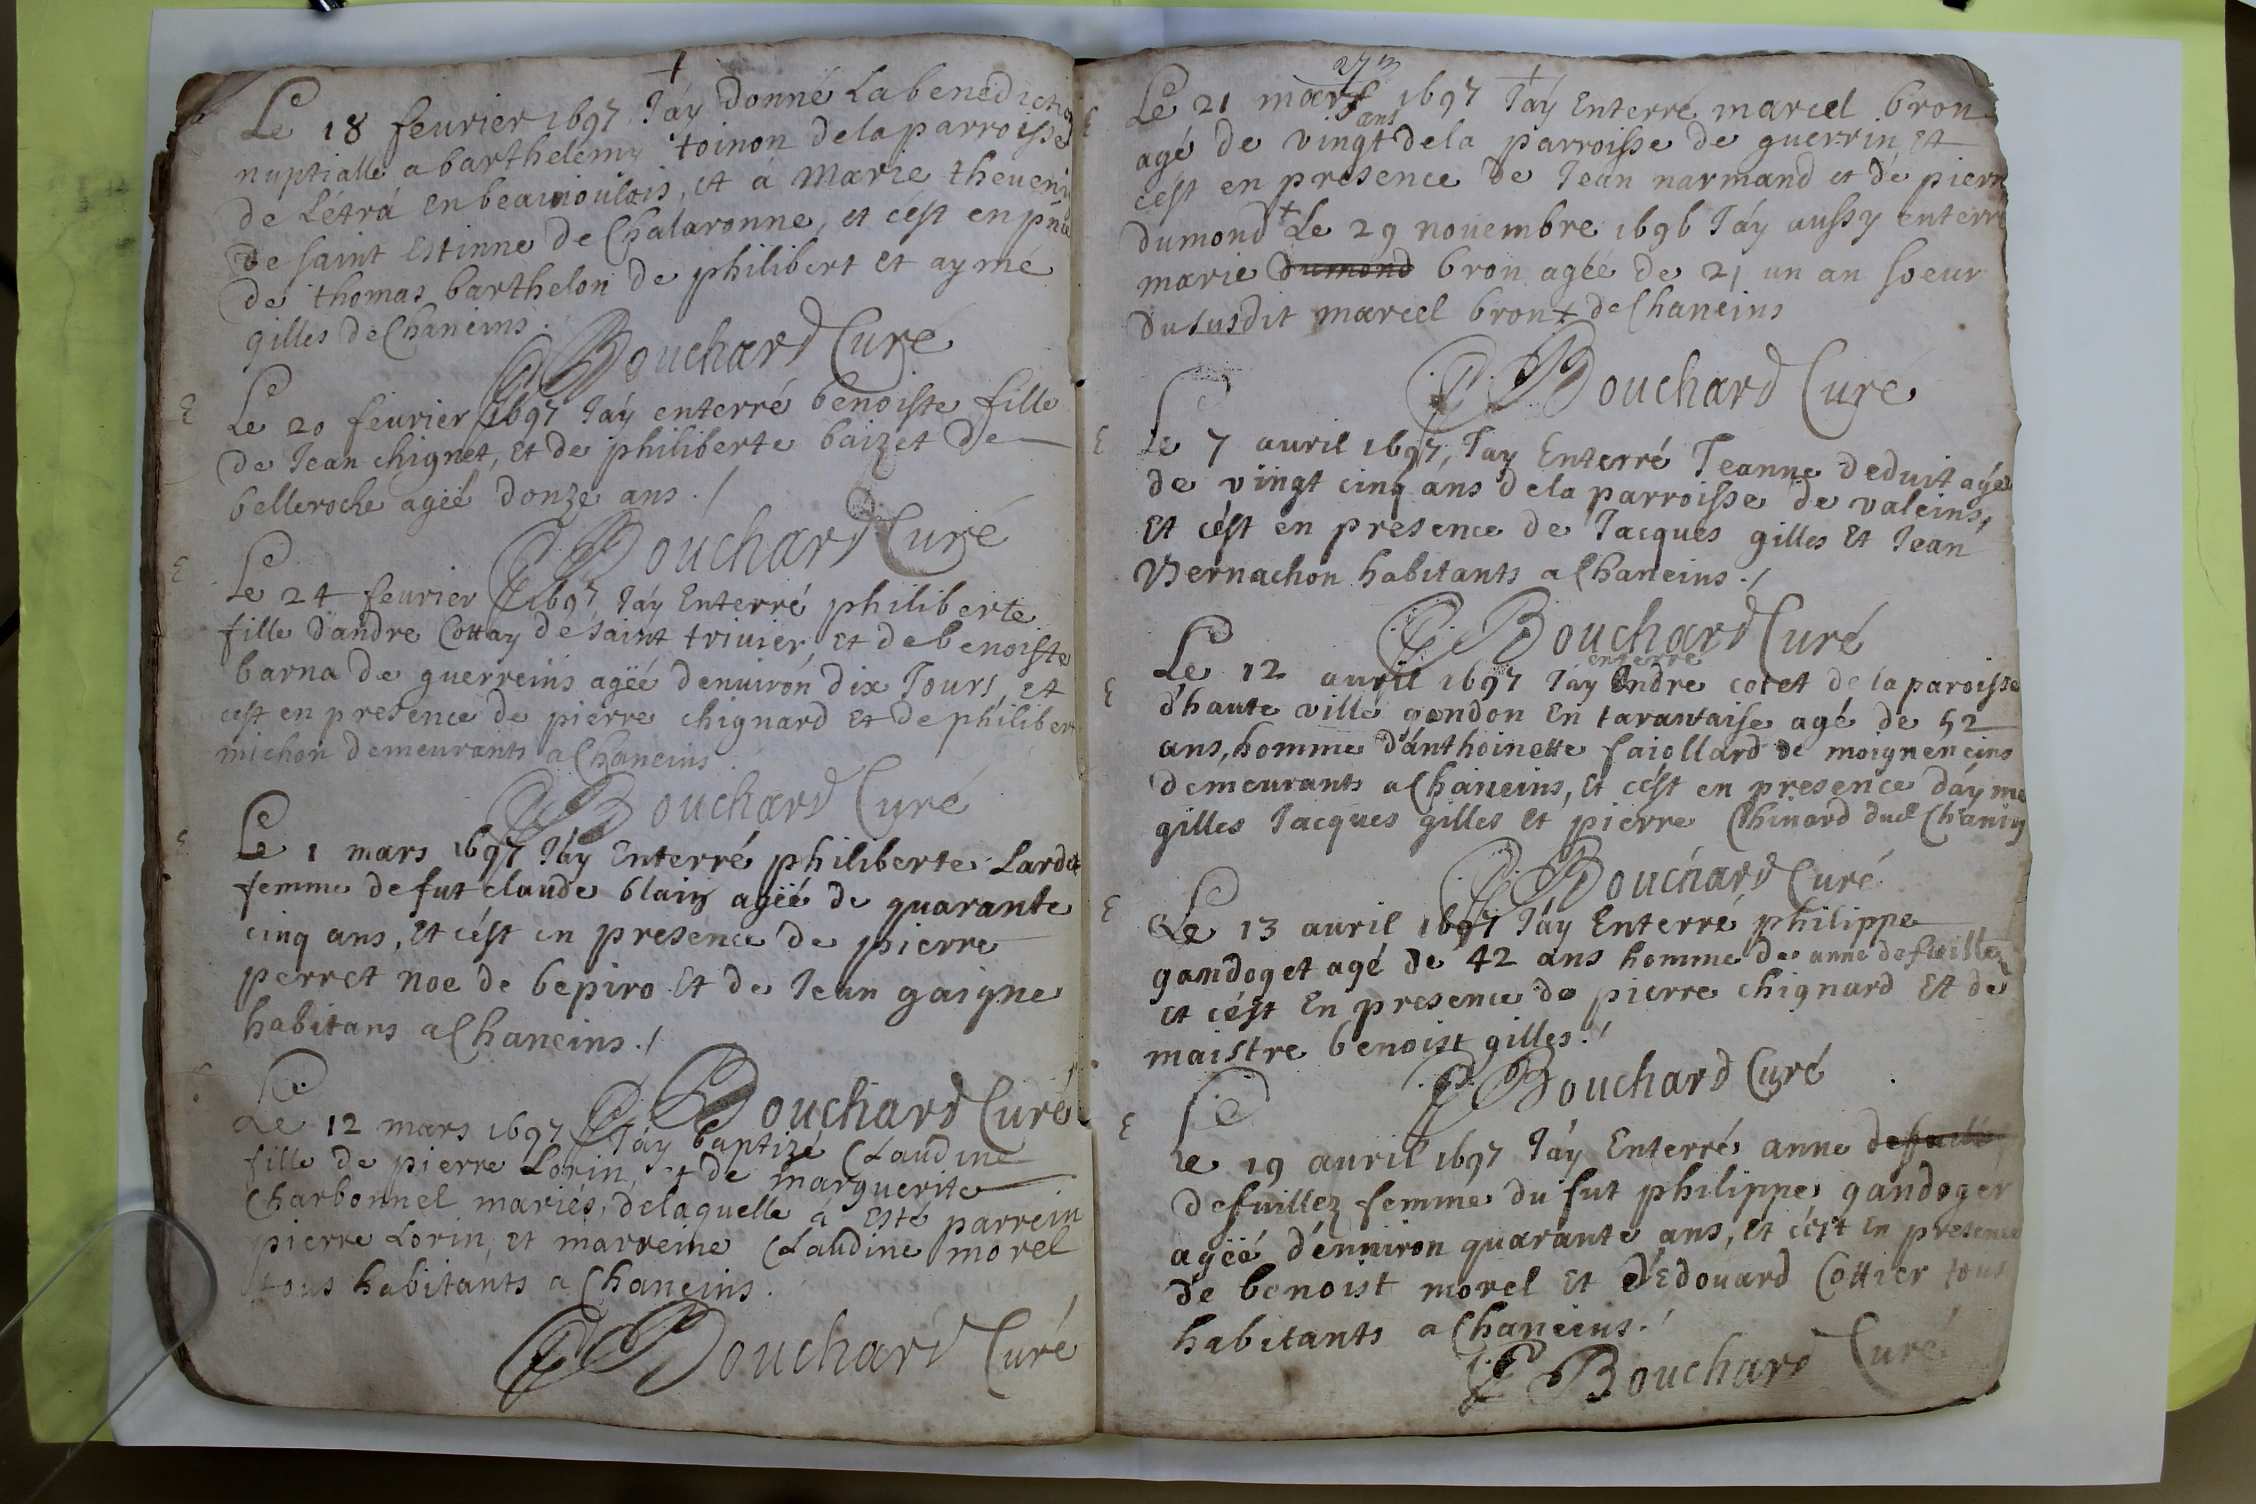 Le 18 feurier 1697 Jáy donné La benediction
nuptialle a barthelemy toinon de la parroisse
de Létrá en beaujoulois, et á Marie theuenin
de saint Estinne de Chalaronne, et cést en pñce
de thomas barthelon de philibert et aymé
gilles de Chaneins.
Bouchard Curé
E Le 20 feurier 1697 Jáy enterré benoiste fille
de Jean chignet, Et de philiberte baizet de
belleroche ageé donze ans ./
Bouchard Curé
E Le 24 feurier 1697 Jáy Enterré philiberte
fille dandre Cottay de saint triuier, et de benoiste
barna de guerreins ageé denuiron dix Jours, et
cest en presence de pierre chignard Et de philiber
michon demeurants a Chaneins.
Bouchard Curé
E Le 1 mars 1697 Jáy Enterré philiberte Lardet
femme de fut claude blain ageé de quarante
cinq ans, Et cést en presence de pierre
perret noe de bepiro Et de Jean gaigne
habitans a Chaneins ./
Bouchard Curé
Le 12 mars 1697 Jáy baptizé Claudine
fille de pierre Lorin, et de marguerite
Charbonnel mariés, delaquelle á Esté parrein
pierre Lorin, et marreine Claudine morel
tous habitants a Chaneins.
Bouchard Curé
27
E Le 21 mars 1697 Jáy Enterré marcel bron
ans
agé de vingt dela parroisse de guerrin, Et
cést en presence de Jean narmand et de pierre
dumond + Le 29 nouembre 1696 Jáy aussy enterré
marie dumond bron ageé de 21 un an soeur
du susdit marcel bron + de Chaneins
Bouchard Curé
E Le 7 auril 1697, Jay Enterré Jeanne deduit agée
de vingt cinq ans dela parroisse de valeins,
Et cést en presence de Jacques gilles Et Jean
Vernachon habitants a Chaneins ./
Bouchard Curé
enterré
E Le 12 auril 1697 Jáy Andre cotet de la paroisse
d'haute ville gondon En tarantaise agé de 52
ans, homme d'ánthoinette faiollard de moigneneins
demeurants a Chaneins, Et cést en presence dáymé
gilles Jacques gilles Et pierre Chinard dud Chanins
Bouchard Curé
E Le 13 auril 1697 Jáy Enterré philippe
gandoget agé de 42 ans homme de anne defuillez
et cést En presence de pierre chignard Et de
maistre benoist gilles ./
Bouchard Curé
E Le 19 auril 1697 Jáy Enterré anne defuillé
defuillez femme du fut philippe gandoger
ageé d'énuiron quarante ans, Et cést En presence
de benoist morel Et d'Edouard Cottier tous
habitants a Chaneins ./
Bouchard Curé